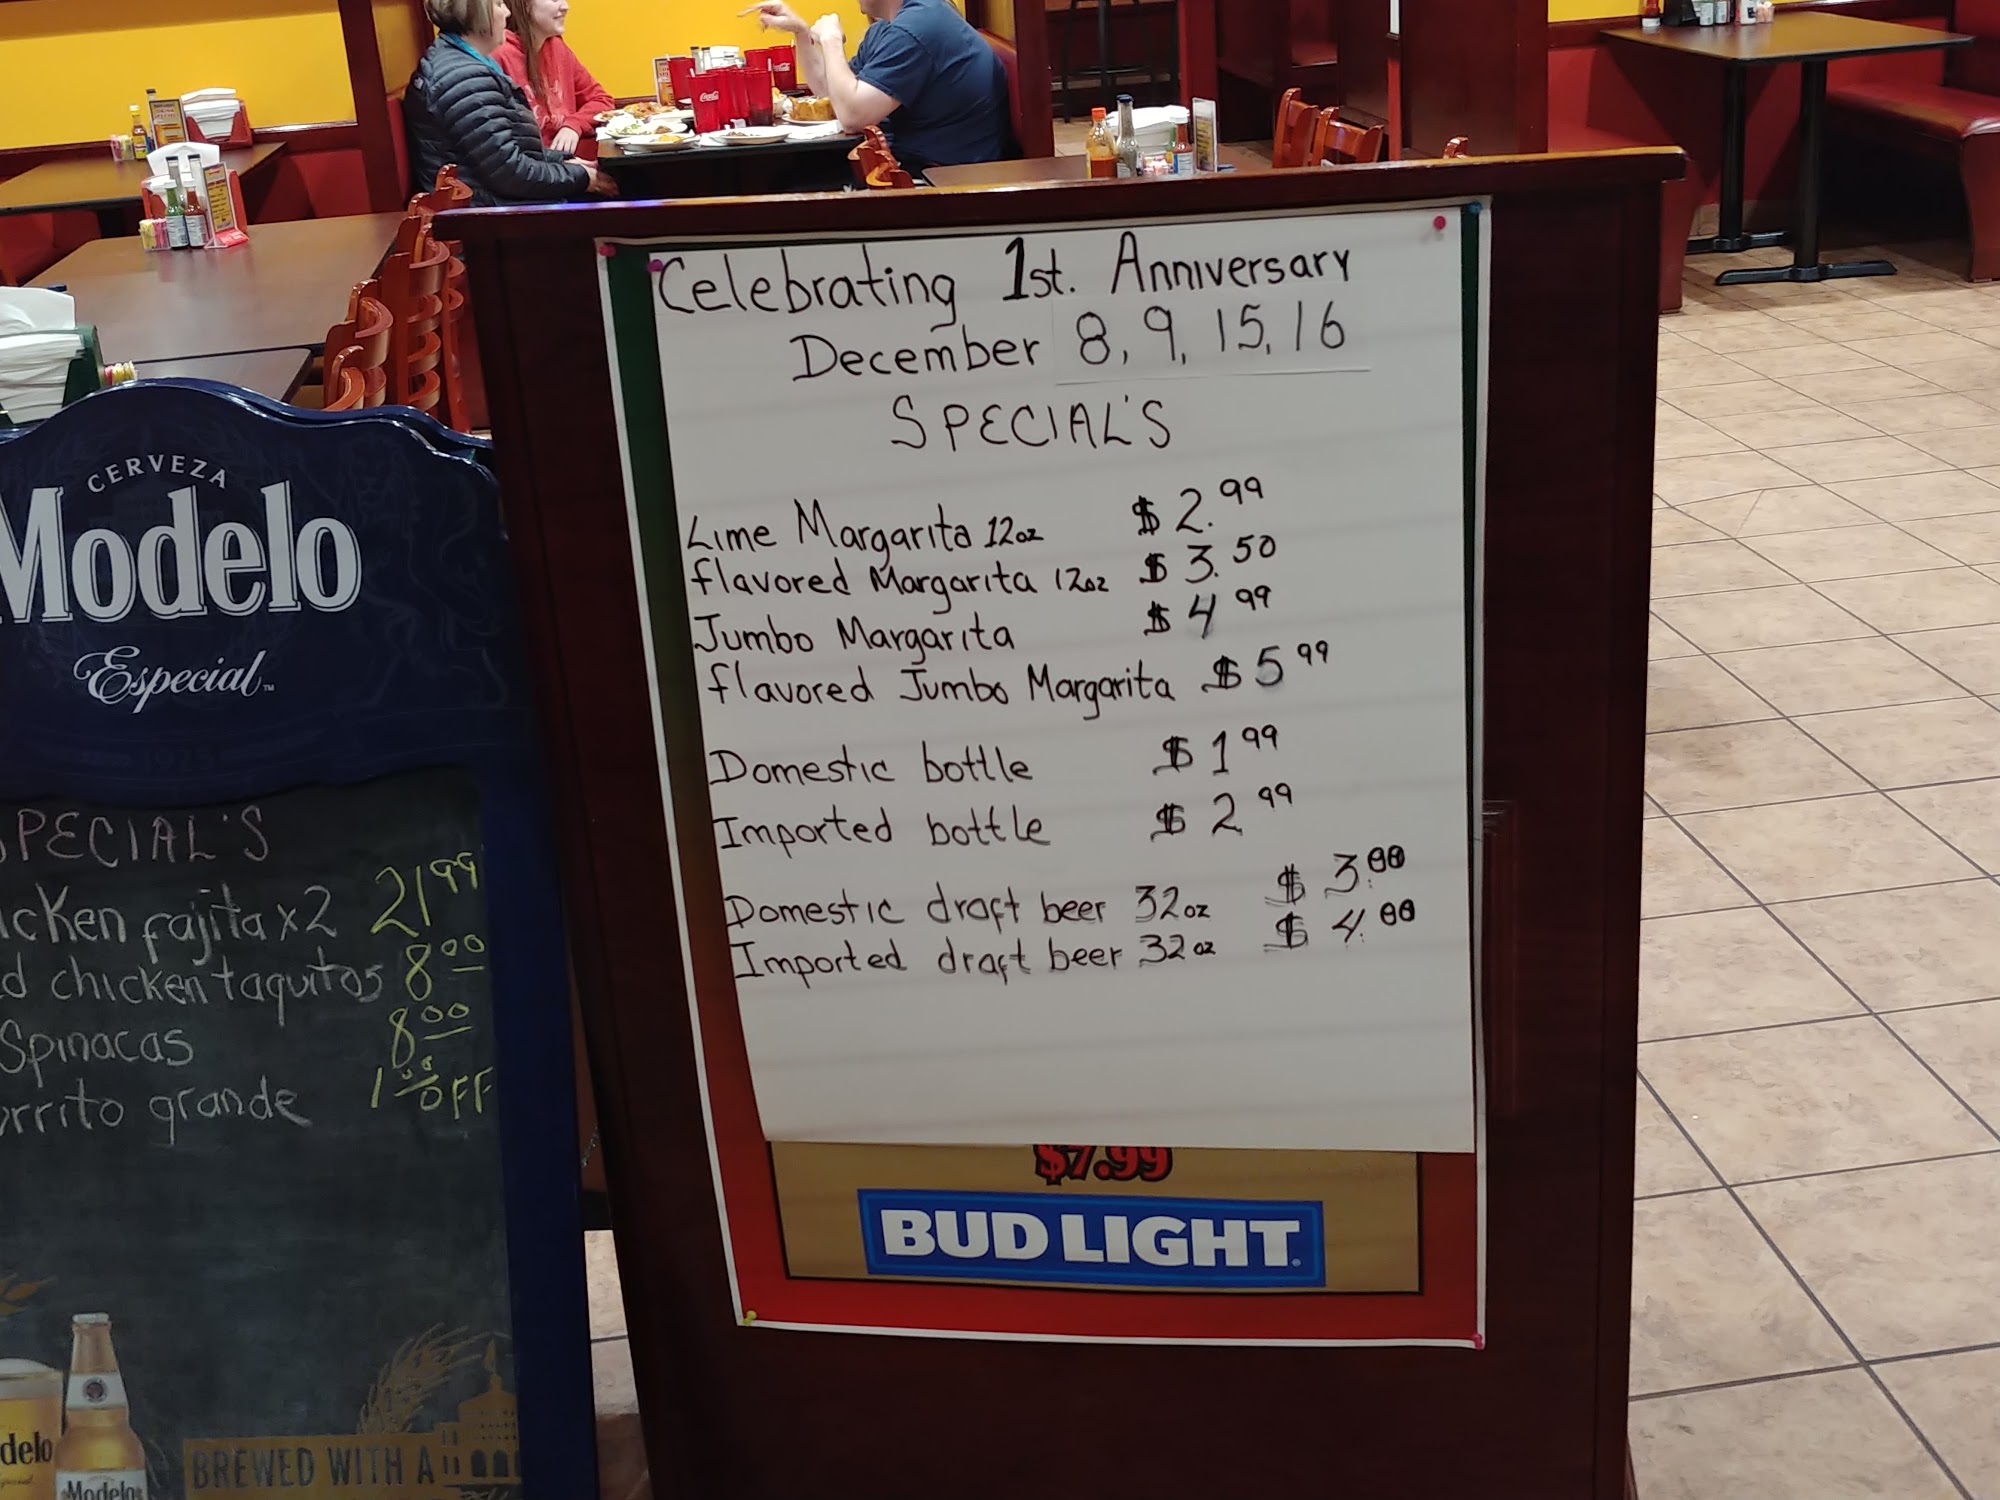 Celebrating 1st. Anniversary
December 8, 9, 15, 16
SPECIAL'S
Lime Margarita 12oz $2.99
flavored Margarita 12oz $3.50
Jumbo Margarita $4 99
flavored Jumbo Margarita $5 99
Domestic bottle $1 99
Imported bottle $2 99
Domestic draft beer 32oz $3.00
Imported draft beer 32oz $4.00
$7.99
BUD LIGHT
CERVEZA
Modelo
Especial
1925
SPECIAL'S
icken fajita x2 21 99
d chicken taquitos 8 00
Spinacas 8 00
urrito grande 1 00 OFF
delo
Modelo
BREWED WITH A
Coca-Cola